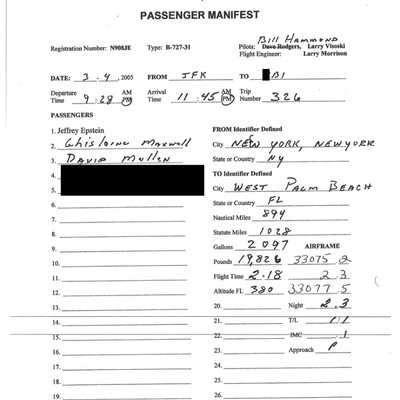 PASSENGER MANIFEST
Bill Hammond
Registration Number: N908JE Type: B-727-31 Pilots: Dave Rodgers, Larry Visoski
Flight Engineer: Larry Morrison
DATE: 3-4, 2005 FROM JFK TO BI
Departure Time 9:28 AM PM Arrival Time 11:45 AM PM Trip Number 326
PASSENGERS
1. Jeffrey Epstein FROM Identifier Defined
2. Ghislaine Maxwell City NEW YORK, NEW YORK
3. David Mullen State or Country NY
4. TO Identifier Defined
5. City WEST PALM BEACH
6. State or Country FL
7. Nautical Miles 894
8. Statute Miles 1028
9. Gallons 2097 AIRFRAME
10. Pounds 19,826 33075 2
11. Flight Time 2+18 2 3
12. Altitude FL 380 33077 5
13. 20. Night 2.3
14. 21. T/L 1/1
15. 22. IMC .1
16. 23. Approach P
17. 24.
18. 25.
19. 26.